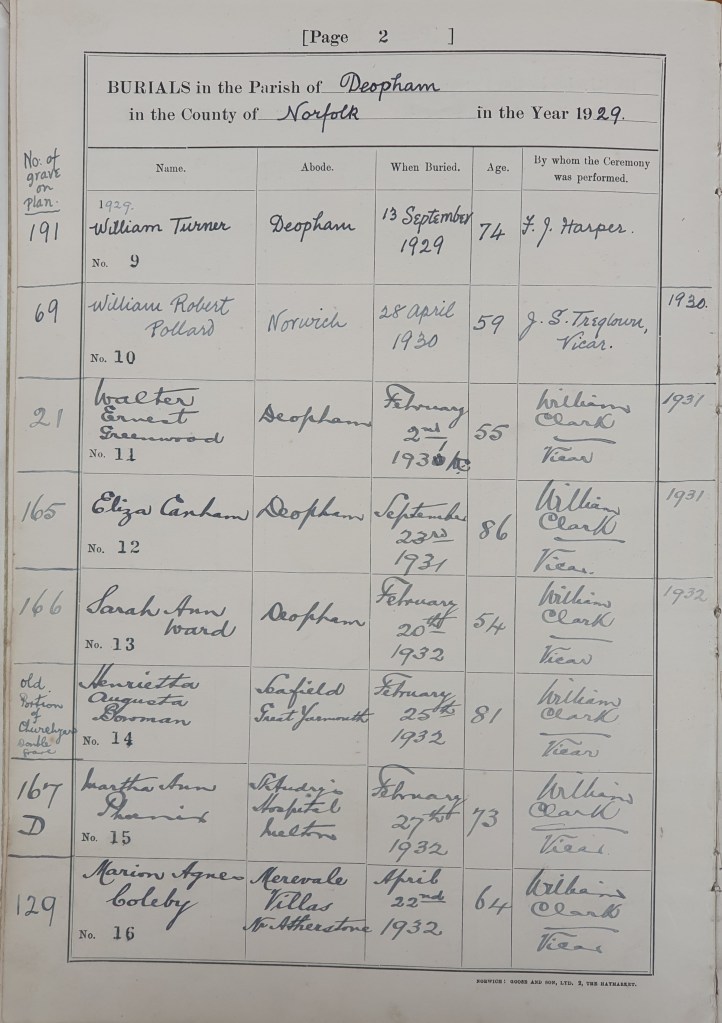 [Page 2 ]
BURIALS in the Parish of Deopham
in the County of Norfolk in the Year 1929.
No. of grave on Plan.
Name. Abode. When Buried. Age. By whom the Ceremony was performed.
1929.
191 William Turner Deopham 13 September 1929 74 F. J. Harper.
No. 9
69 William Robert Pollard Norwich 28 April 1930 59 J. S. Treglown, Vicar. 1930.
No. 10
21 Walter Ernest Greenwood Deopham February 2nd 1931 55 William Clark Vicar 1931
No. 11
165 Eliza Canham Deopham September 23rd 1931 86 William Clark Vicar. 1931
No. 12
166 Sarah Ann Ward Deopham February 20th 1932 54 William Clark Vicar 1932
No. 13
old Portion of Churchyard Double grave Henrietta Augusta Bowman Seafield Great Yarmouth February 25th 1932 81 William Clark Vicar
No. 14
167 D Martha Ann Phoenix St Audry's Hospital Melton February 27th 1932 73 William Clark Vicar
No. 15
129 Marion Agnes Coleby Merevale Villas Nr Atherstone April 22nd 1932 64 William Clark Vicar
No. 16
NORWICH: GOOSE AND SON, LTD. 2, THE HAYMARKET.